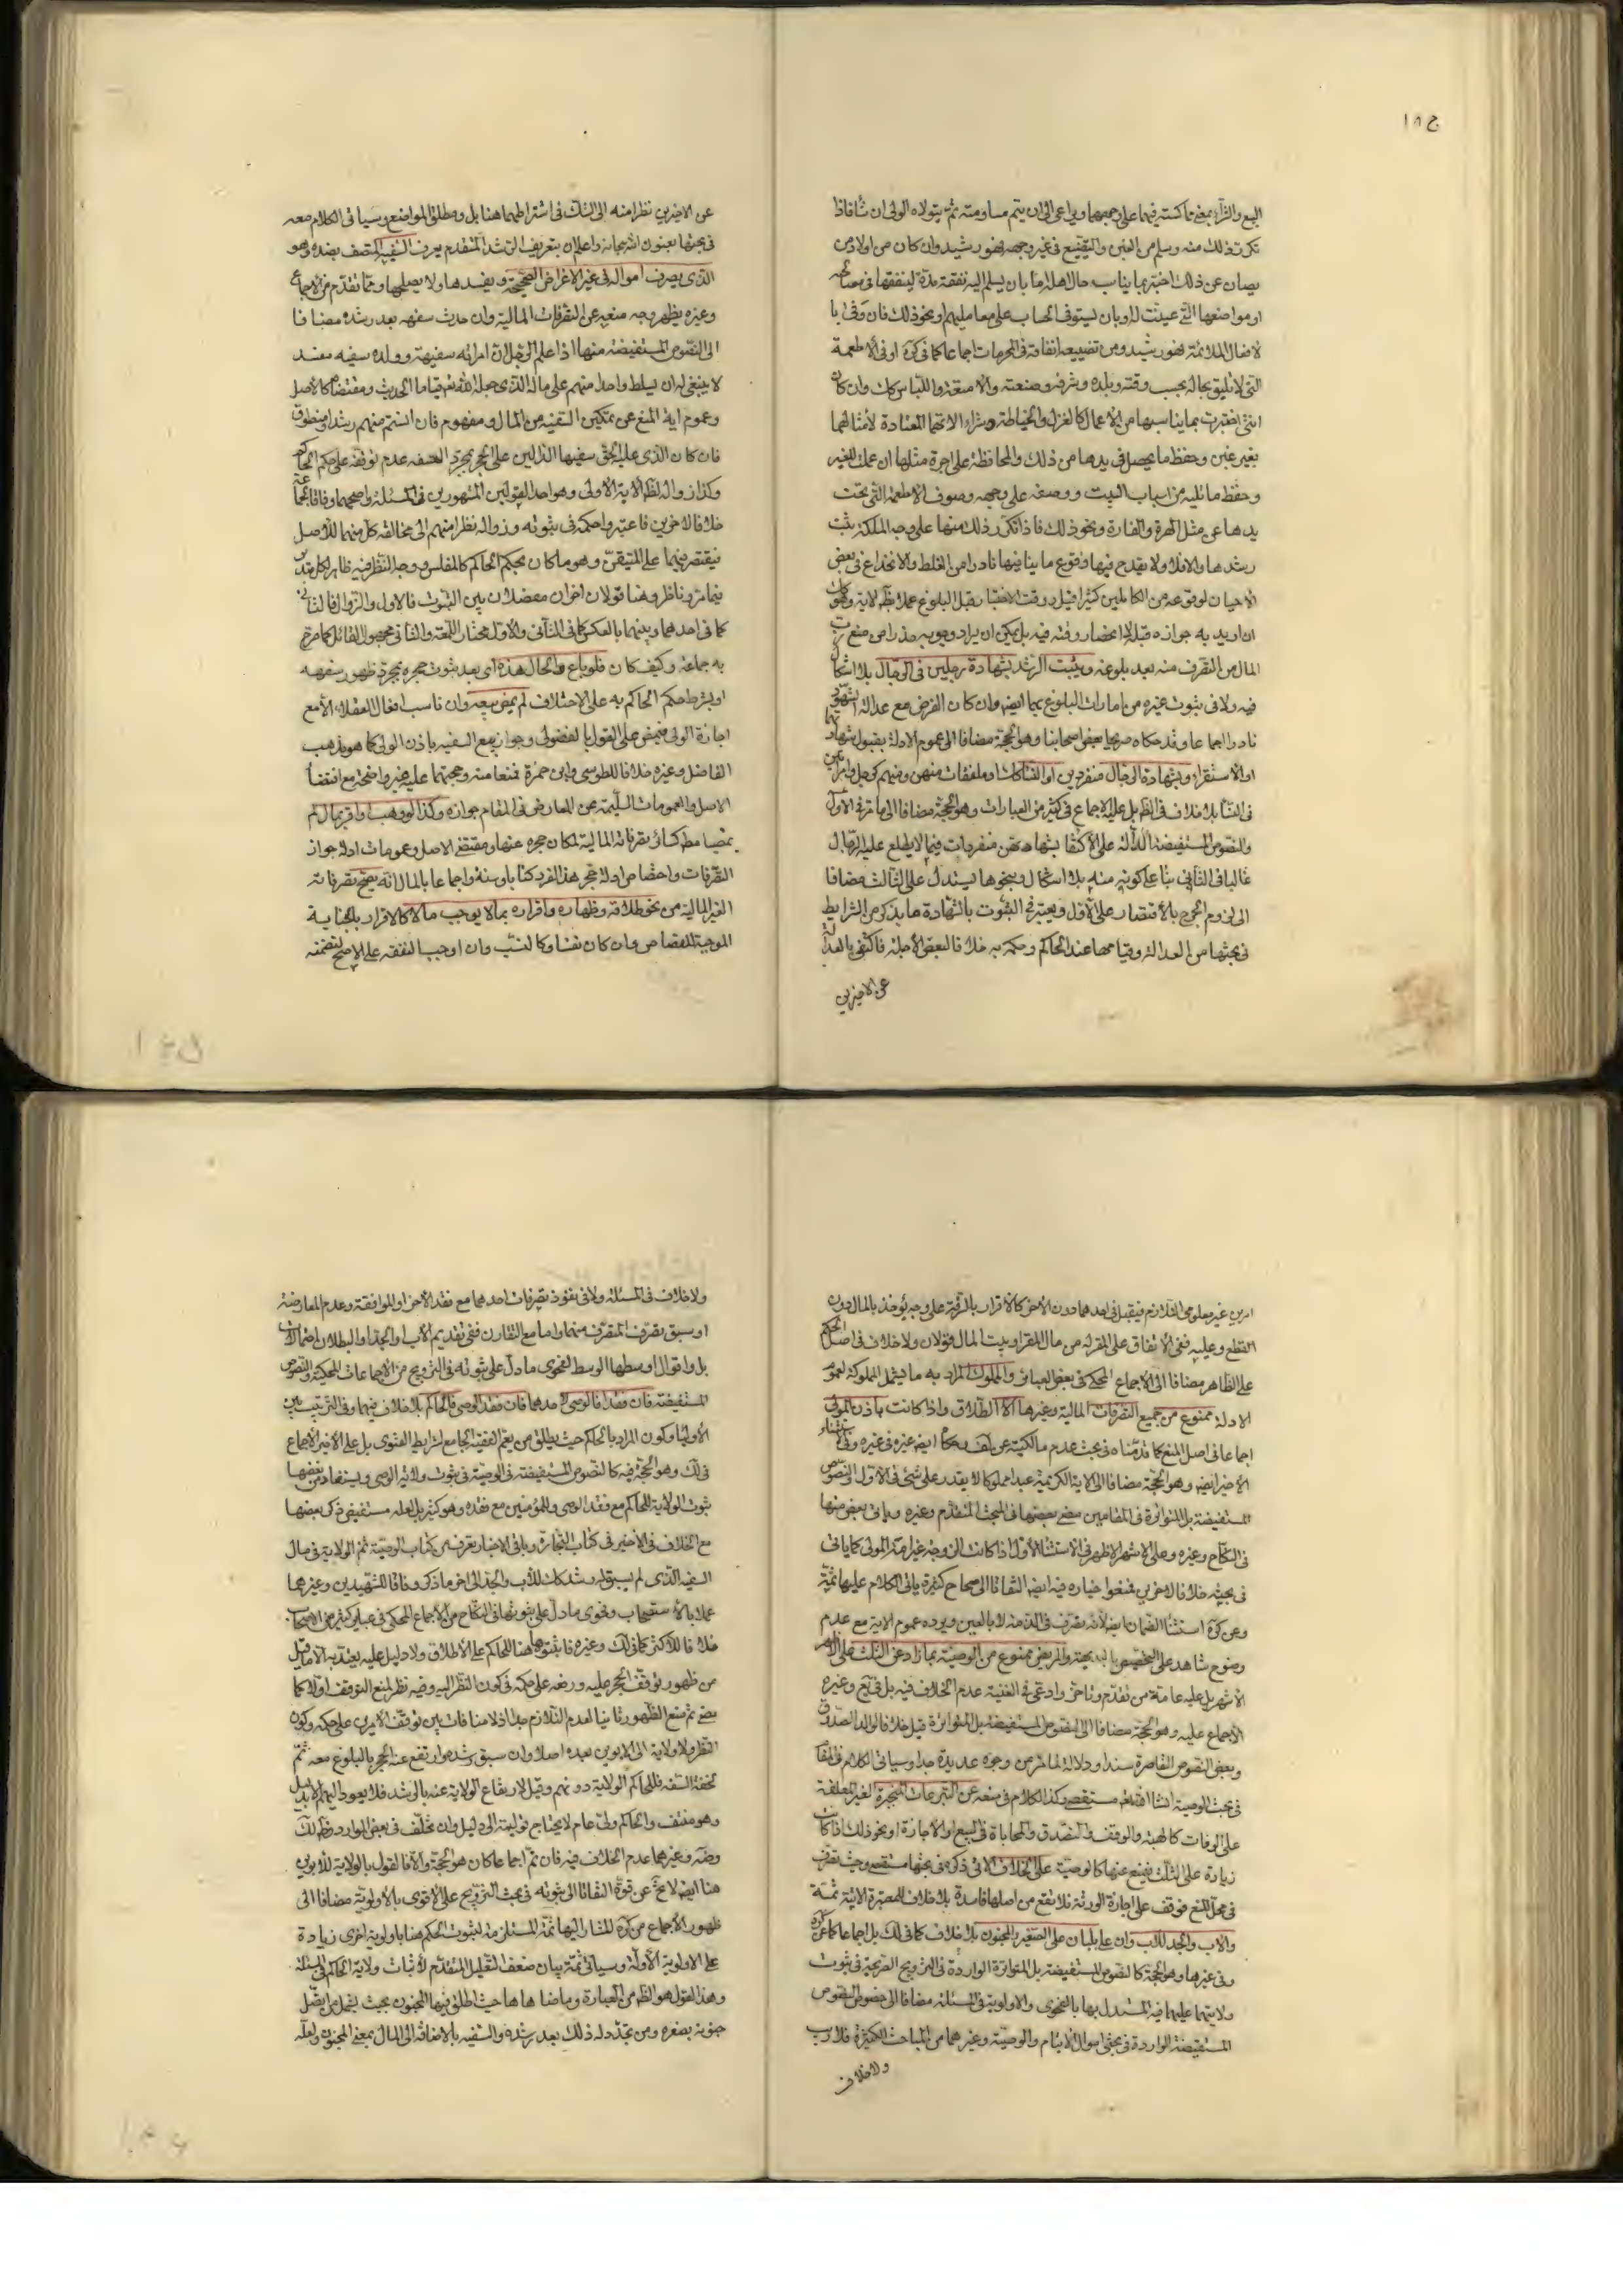 البيع والشراء بمعنى مماكسته فيهما على وجههما ويراعى الى ان يتم مساومته ثم يتولاه الولى ان شاء فاذا
تكرر ذلك منه وسلم من الغبن والتضييع فى غير وجهه فهو رشيد وان كان من اولاد من
يصان عن ذلك اختبر بما يناسب حال اهله اما بان يسلم اليه نفقة مدة لينفقها فى مصالحه
او مواضعها التى عينت له او بان يستوفى الحساب على معامليهم ونحو ذلك فان وفى با
لافعال الملائمة فهو رشيد ومن تضييعه انفاقه فى المحرمات اجماعا كما فى كره او فى الاطعمة
التى لا تليق بحاله بحسب وقته وبلده وشرفه وضعته والامتعة واللباس كك وان كان
انثى اختبرت بما يناسبها من الاعمال كالغزل والخياطة وشراء الاتهما المعتادة لامثالهما
بغير غبن وحفظ ما يحصل فى يدها من ذلك والمحافظة على اجرة مثلها ان عملت للغير
وحفظ ما تليه من اسباب البيت ووضعه على وجهه وصون الاطعمة التى تحت
يدها عن مثل الهرة والفارة ونحو ذلك فاذا تكرر ذلك منها على وجه الملكة ثبت
رشدها والا فلا ولا يقدح فيها وقوع ما ينافيها نادرا من الغلط والانخداع فى بعض
الاحيان لوقوعه من الكاملين كثيرا قيل ووقت الاختبار قبل البلوغ عملا بظ الاية وهو كك
ان اريد به جوازه قبله لا انحصار وقته فيه بل يمكن ان يراد وجوبه حذرا من منع رب
المال من التصرف منه بعد بلوغه ويثبت الرشد بشهادة رجلين فى الرجال بلا اشكال
فيه ولا فى ثبوت غيره من امارات البلوغ بهما ايض وان كان الفرض مع عدالة الشهود
نادرا اجماعا وقد حكاه صريحا بعض اصحابنا وهو الحجة مضافا الى عموم الادلة بقبول شهادتهما
او الاستقراء وبشهادة الرجال منفردين او النساء كك او ملفقات منهن ومنهم كرجل وامراتين
فى النساء بلا خلاف فى الظ بل عليه الاجماع فى كثير من العبارات وهو الحجة مضافا الى ما مر فى الاول
والنصوص المستفيضة الدالة على الاكتفا بشهادتهن منفردات فيما لا يطلع عليه الرجال
غالبا فى الثانى بناء على كونه منه بلا اشكال وبنحوها يستدل على الثالث مضافا
الى لزوم الحرج بالاقتصار على الاول ويعتبر فى الثبوت بالشهادة ما يذكر من الشرايط
فى بحثها من العدالة وقيامها عند الحاكم وحكمه به خلافا لبعض الاجلة فاكتفى بالعدالة
عن الاخيرين
عن الاخيرين نظرا منه الى الشك فى اشتراطهما هنا بل ومطلق المواضع وسياتى الكلام معه
فى بحثها بعون الله سبحانه واعلم ان بتعريف الرشد المتقدم يعرف السفيه المتصف بضده وهو
الذى يصرف امواله فى غير الاغراض الصحيحة ويفسدها ولا يصلحها ومما تقدم من الاجماع
وغيره يظهر وجه منعه عن التصرفات المالية وان حدث سفهه بعد رشده مضافا
الى النصوص المستفيضة منها اذا علم الرجل ان امراته سفيهة وولده سفيه مفسد
لا ينبغى له ان يسلط واحدا منهم على ماله الذى جعله الله تم قياما الحديث ومقتضاه كالاصل
وعموم اية المنع عن تمكين السفيه من المال ومفهوم فان انستم منهم رشدا ومنطوق
فان كان الذى عليه الحق سفيها الدالين على الحجر بمجرد السفه عدم توقفه على حكم الحاكم
وكذا زواله لظ الاية الاولى وهو احد القولين المشهورين فى المسئلة واصحهما وفاقا لجماعة
خلافا لاخرين فاعتبروا حكمه فى ثبوته وزواله نظرا منهم الى مخالفة كل منهما للاصل
فيقتصر فيهما على المتيقن وهو ما كان بحكم الحاكم كالمفلس ووجه النظر فيه ظاهر لكل متدبر
فيما مر وناظر وهنا قولان اخران مفصلان بين الثبوت فالاول والزوال فالثانى
كما فى احدهما وبينهما بالعكس كما فى الثانى والاول مختار اللمعة والثانى مجهول القائل كما صرح
به جماعة وكيف كان فلو باع والحال هذه اى بعد ثبوت حجره بمجرد ظهور سفهه
او بشرط حكم الحاكم به على الاختلاف لم يمض بيعه وان ناسب افعال العقلاء الا مع
اجازة الولى فيمضى على القول بالفضولى وجواز بيع السفيه باذن الولى كما هو مذهب
الفاضل وغيره خلافا للطوسى وابن حمزة فمنعا منه وحجتهما عليه غير واضحة مع اقتضا
الاصل والعمومات السليمة عن المعارض فى المقام جوازه وكذا لو وهب او اقر بمال لم
يمضيا مط كسائر تصرفاته المالية لمكان حجره عنها ومقتضى الاصل وعمومات ادلة جواز
التصرفات واختصاص ادلة حجر هذا الفرد كتابا وسنة واجماعا بالمال انه يصح تصرفاته
الغير المالية من نحو طلاقه وظهاره واقراره بما لا يوجب مالا كالاقرار بالجناية
الموجبة للقصاص وان كان نفسا وكالنسب وان اوجب النفقة على الاصح لتضمنه
امرين غير معلومى التلازم فيقبل فى احدهما دون الاخر كالاقرار بالسرقة على وجه يؤخذ بالمال دون
القطع وعليه ففى الانفاق على المقر له من مال المقر او بيت المال قولان ولا خلاف فى اصل الحكم
على الظاهر مضافا الى الاجماع المحكى فى بعض العبائر والمملوك المراد به ما يشمل المملوكة لعموم
الادلة ممنوع من جميع التصرفات المالية وغيرها الا الطلاق واذا كانت باذن المولى
اجماعا فى اصل المنع كما قدمناه فى بحث عدم مالكيته عن كره محكيا ايضا عن غيره وفى استثناء
الاخير ايض وهو الحجة مضافا الى الاية الكريمة عبدا مملوكا لا يقدر على شئ فى الاول والنصوص
المستفيضة بل المتواترة فى المقامين مضى بعضها فى البحث المتقدم وغيره وياتى بعض منها
فى النكاح وغيره وعلى الاشهر الاظهر فى الاستثناء الاول اذا كانت الزوجة غير امة المولى كما ياتى
فى بحثه خلافا لاخرين فمنعوا خياره فيه ايض التفاتا الى صحاح كثيرة ياتى الكلام عليها ثمة
وعن كره استثنا الضمان ايض لانه تصرف فى الذمة لا بالعين ويرده عموم الاية مع عدم
وضوح شاهد على التخصيص بالبديهة والمريض ممنوع من الوصية بما زاد عن الثلث على الاظهر
الاشهر بل عليه عامة من تقدم وتاخر وادعى فى الغنية عدم الخلاف فيه بل فى يع وغيره
الاجماع عليه وهو الحجة مضافا الى النصوص المستفيضة بل المتواترة قيل خلافا لوالد الصدوق
وبعض النصوص القاصرة سندا ودلالة لما مر من وجوه عديدة جدا وسياتى الكلام فى المقام
فى بحث الوصية انشا الله تعم مستقصى وكذا الكلام فى منعه عن التبرعات المنجزة الغير المعلقة
على الوفات كالهبة والوقف والتصدق والمحاباة فى البيع او الاجارة او نحو ذلك اذا كانت
زيادة على الثلث فيمنع عنها كالوصية على الخلاف الاتى ذكره فى بحثها مستقصى وحيث تصرف
فى محل المنع فوقف على اجازة الورثة فلا تقع من اصلها فاسدة بلا خلاف للمعتبرة الاتية ثمة
والاب والجد للاب وان علا يليان على الصغير والمجنون بلا خلاف كما فى لك بل اجماعا كما عن كره
وفى غيرها وهو الحجة كالنصوص المستفيضة بل المتواترة الواردة فى التزويج الصريحة فى ثبوت
ولايتهما عليهما فيه المستدل بها بالفحوى والاولوية فى المسئلة مضافا الى خصوص النصوص
المستفيضة الواردة فى بحثى اموال الايتام والوصية وغيرهما من المباحث الكثيرة فلا ريب
ولا خلاف
ولا خلاف فى المسئلة ولا فى نفوذ تصرفات احدهما مع فقد الاخر او الموافقة وعدم المعارضة
او سبق تصرف المتصرف منهما واما مع التقارن ففى تقديم الاب او الجد او البطلان احتمالات
بل واقوال اوسطها الوسط لفحوى ما دل على ثبوته فى التزويج من الاجماعات المحكية والنصوص
المستفيضة فان فقدا فالوصى لاحدهما فان فقد الوصى فالحاكم بلا خلاف فيهما وفى الترتيب بين
الاوليا وكون المراد بالحاكم حيث يطلق من يعم الفقيه الجامع لشرايط الفتوى بل على الاخير الاجماع
فى لك وهو الحجة فيه كالنصوص المستفيضة فى الوصية فى ثبوت ولاية الوصى ويستفاد من بعضها
ثبوت الولاية للحاكم مع فقد الوصى وللمؤمنين مع فقده وهو كثير بل لعله مستفيض ذكر بعضها
مع الخلاف فى الاخير فى كتاب التجارة وباقى الاخبار تعرف من كتاب الوصية ثم الولاية فى مال
السفيه الذى لم يسبق له رشد كك للاب والجد الى اخر ما ذكر وفاقا للشهيدين وغيرهما
عملا بالاستصحاب وفحوى ما دل على ثبوتها فى النكاح من الاجماع المحكى فى عبائر كثير من الاصحاب
خلافا للاكثر كما فى لك وغيره فاثبتوها هنا للحاكم على الاطلاق ولا دليل عليه يعتد به الا ما قيل
من ظهور توقف الحجر عليه ورفعه على حكمه فى كون النظر اليه وفيه نظر لمنع التوقف اولا كما
مضى ثم منع الظهور ثانيا لعدم التلازم جدا اذ لا منافات بين توقف الامرين على حكمه وكون
النظر والولاية الى الابوين بعده اصلا وان سبق رشده وارتفع عنه الحجر بالبلوغ معه ثم
لحقه السفه فللحاكم الولاية دونهم وقيل لارتفاع الولاية عنه بالرشد فلا يعود اليهم الا بدليل
وهو منتف والحاكم ولى عام لا يحتاج توليته الى دليل وان تخلف فى بعض الموارد وظ لك
وضه وغيرهما عدم الخلاف فيه فان تم اجماعا كان هو الحجة والا فالقول بالولاية للابوين
هنا ايض لا يخ عن قوة التفاتا الى ثبوته فى بحث التزويج على الاقوى بالاولوية مضافا الى
ظهور الاجماع من كره المشار اليها ثمة المستلزمة لثبوت الحكم هنا باولوية اخرى زيادة
على الاولوية الاولة وسياتى ثمة بيان ضعف التعليل المتقدم لاثبات ولاية الحاكم فى المسئلة
وهذا القول هو الظ من العبارة وما ضاهاها حيث اطلق فيها المجنون بحيث يشمل من اتصل
جنونه بصغره ومن تجدد له ذلك بعد رشده والسفيه بالاضافة الى المال بمعنى المجنون ولعله